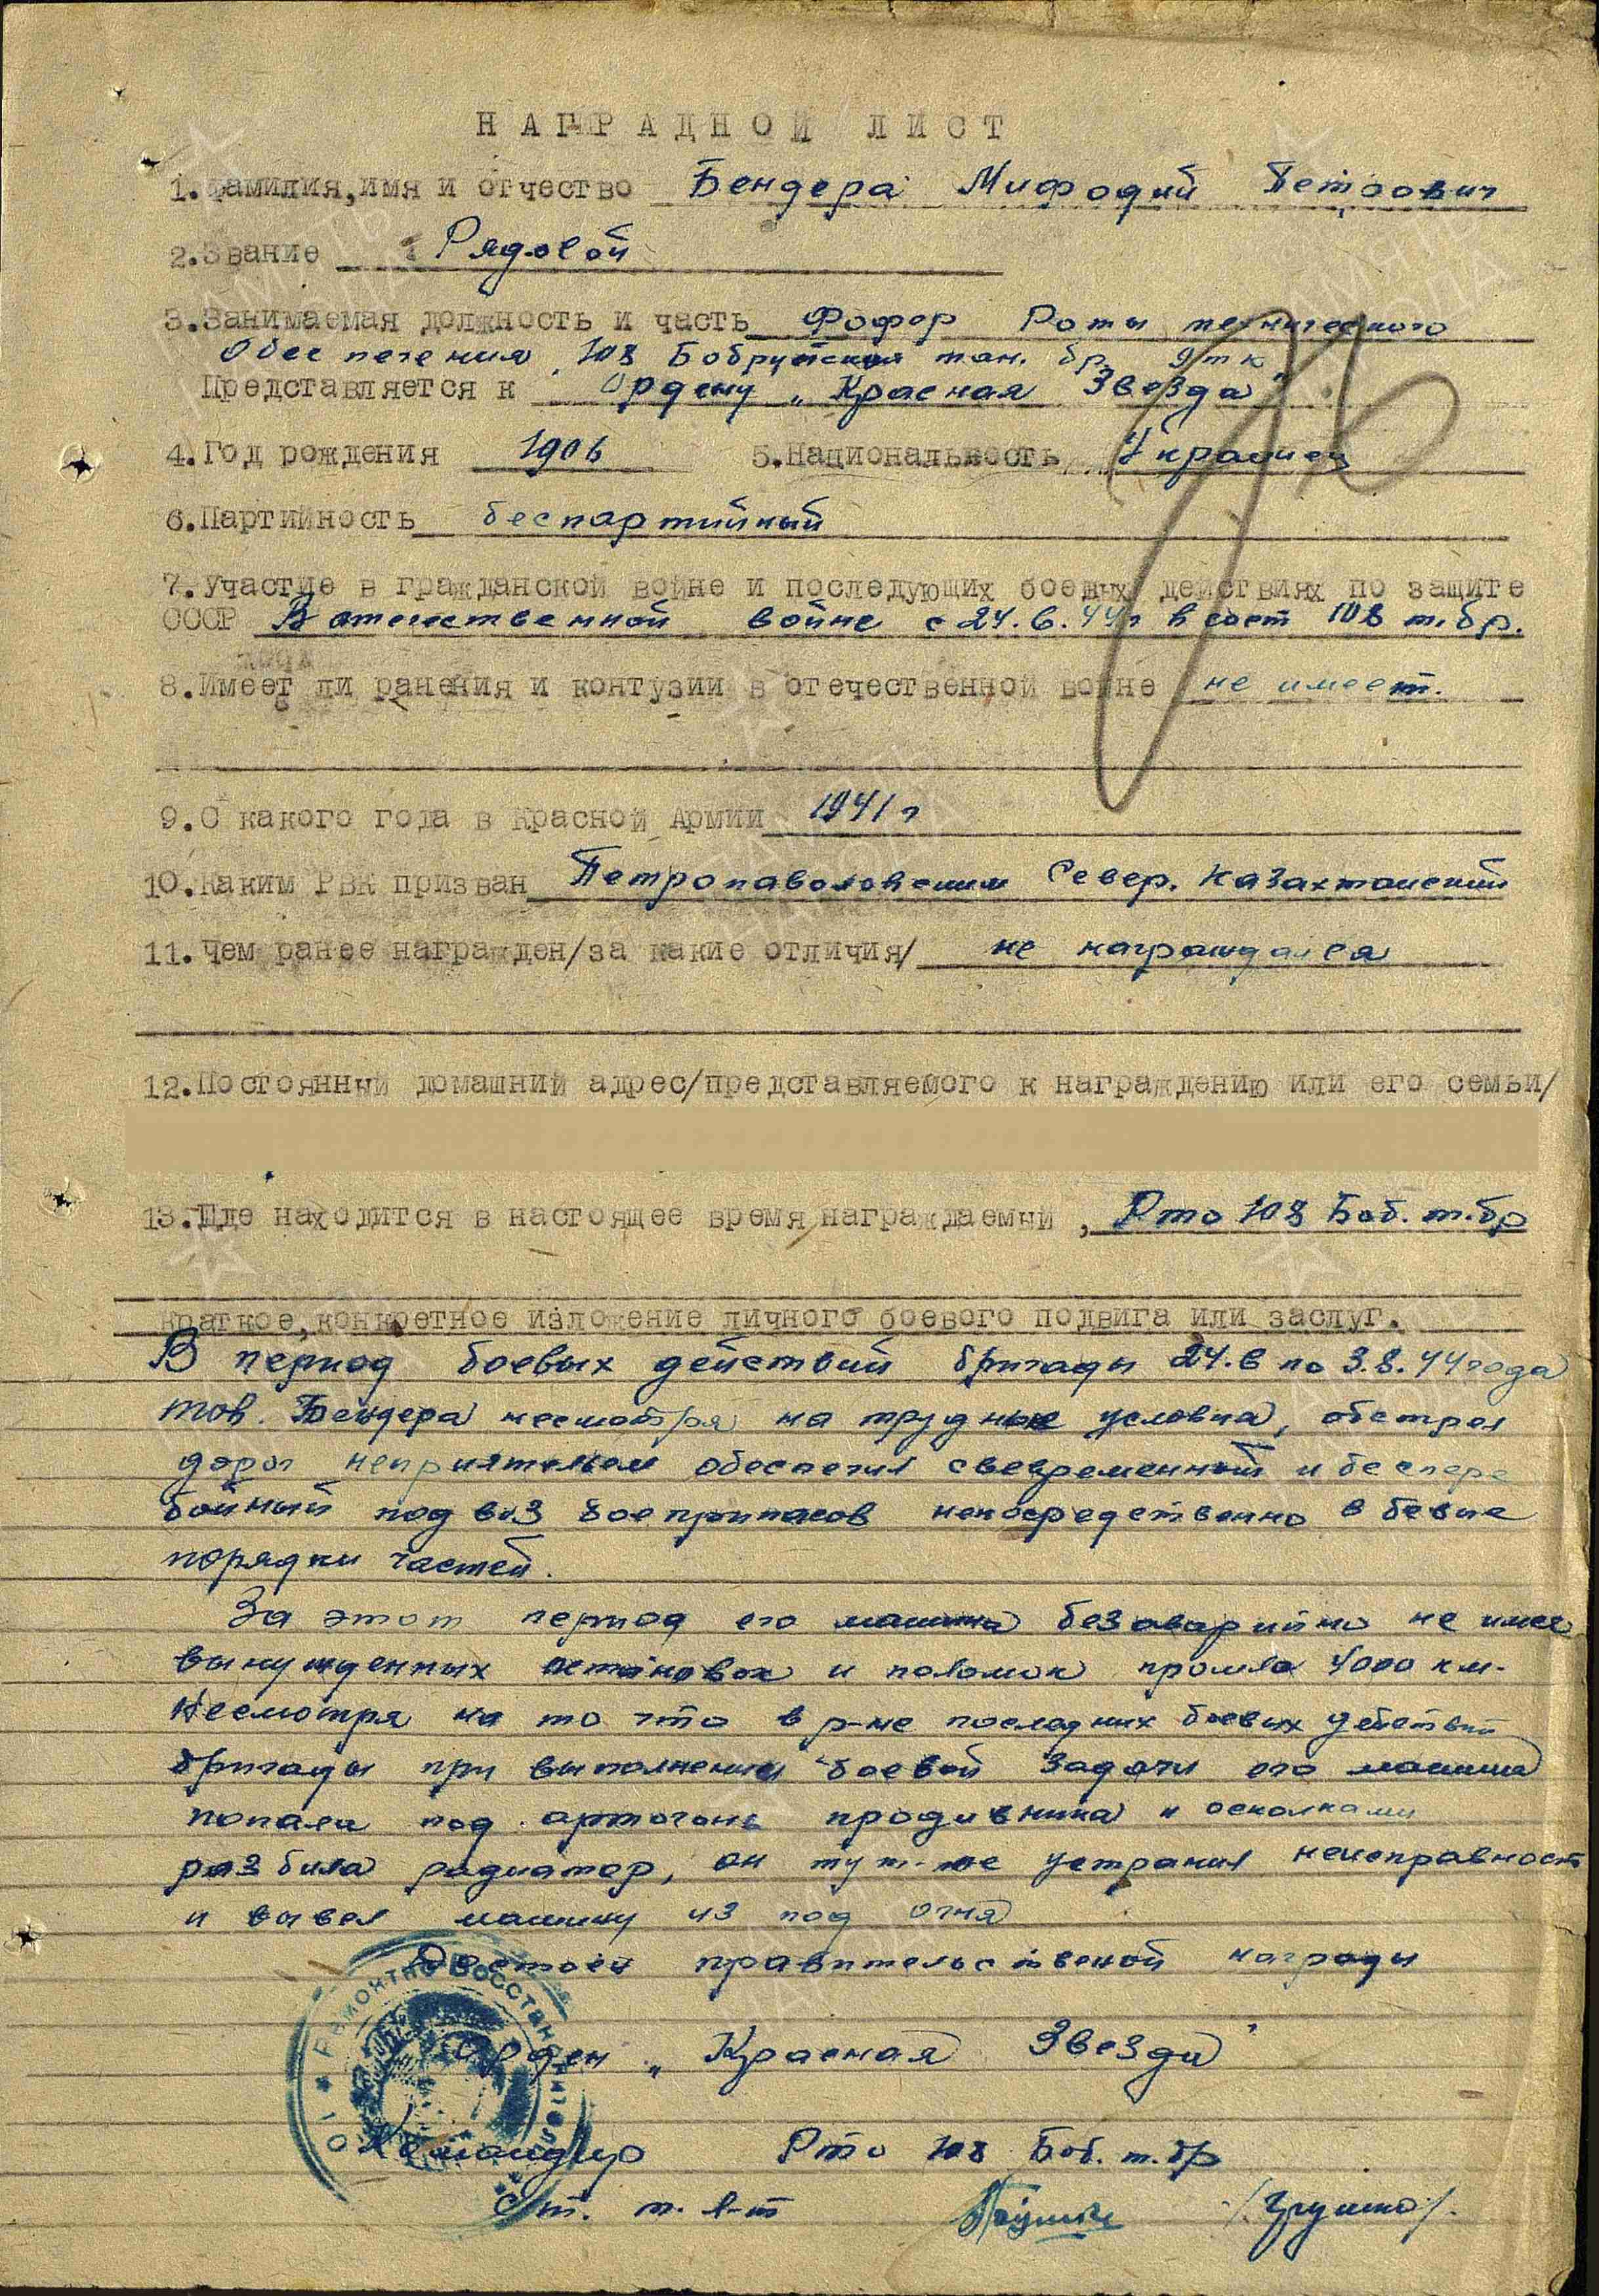 НАГРАДНОЙ ЛИСТ
1. Фамилия, имя и отчество Бендера Мифодий Петрович
2. Звание Рядовой
3. Занимаемая должность и часть Шофер Роты технического
Обеспечения 108 Бобруйская тан. бр. 9 т к
Представляется к Ордену „Красная Звезда"
4. Год рождения 1906 5. Национальность Украинец
6. Партийность беспартийный
7. Участие в гражданской войне и последующих боевых действиях по защите
СССР В отечественной войне с 24.6.44 г в сост 108 т.бр.
8. Имеет ли ранения и контузии в отечественной войне не имеет.
9. С какого года в Красной Армии 1941 г
10. Каким РВК призван Петропавловским Север. Казахтанский
11. Чем ранее награжден/за какие отличия/ не награждался
12. Постоянный домашний адрес/представляемого к награждению или его семьи/
13. Где находится в настоящее время награждаемый, Рто 108 Боб. т.бр
Краткое, конкретное изложение личного боевого подвига или заслуг.
В период боевых действий бригады 24.6 по 3.8.44 года
тов. Бендера несмотря на трудные условия, обстрел
дорог неприятелем обеспечил своевременный и беспере
бойный подвоз боеприпасов непосредственно в боевые
порядки частей.
За этот период его машина безаварийно не имея
вынужденных остановок и поломок прошла 4000 км.
Несмотря на то что в р-не последних боевых действий
бригады при выполнении боевой задачи его машина
попала под артогонь продивника и осколками
разбила радиатор, он тут-же устранил неисправност
и вывел машину из под огня
Достоен правительственой награды
Орден „Красная Звезда"
Командир Рто 108 Боб. т.бр
Ст. т. л-т
Ремонтно Восстановител